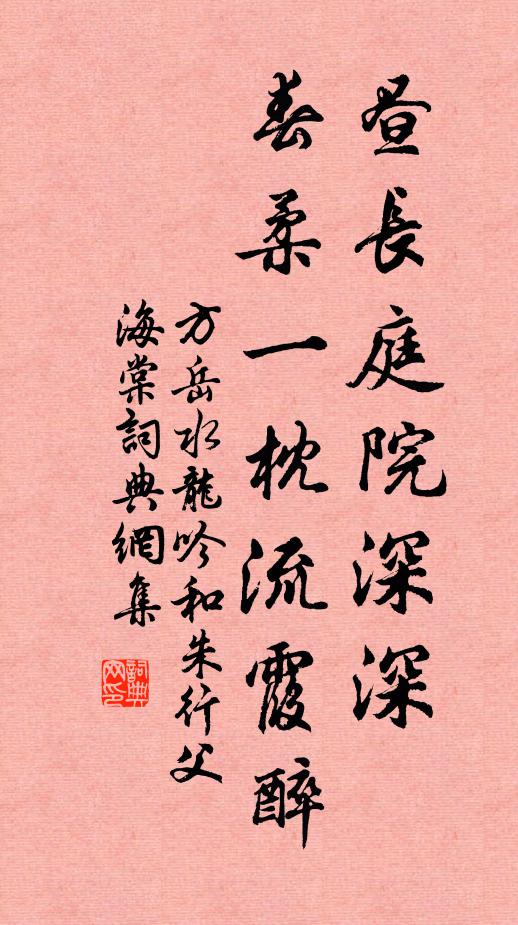 昼長庭院深深
春柔一枕流霞醉
方岳水龍吟和朱行父
海棠詞典網集
詞典
网印